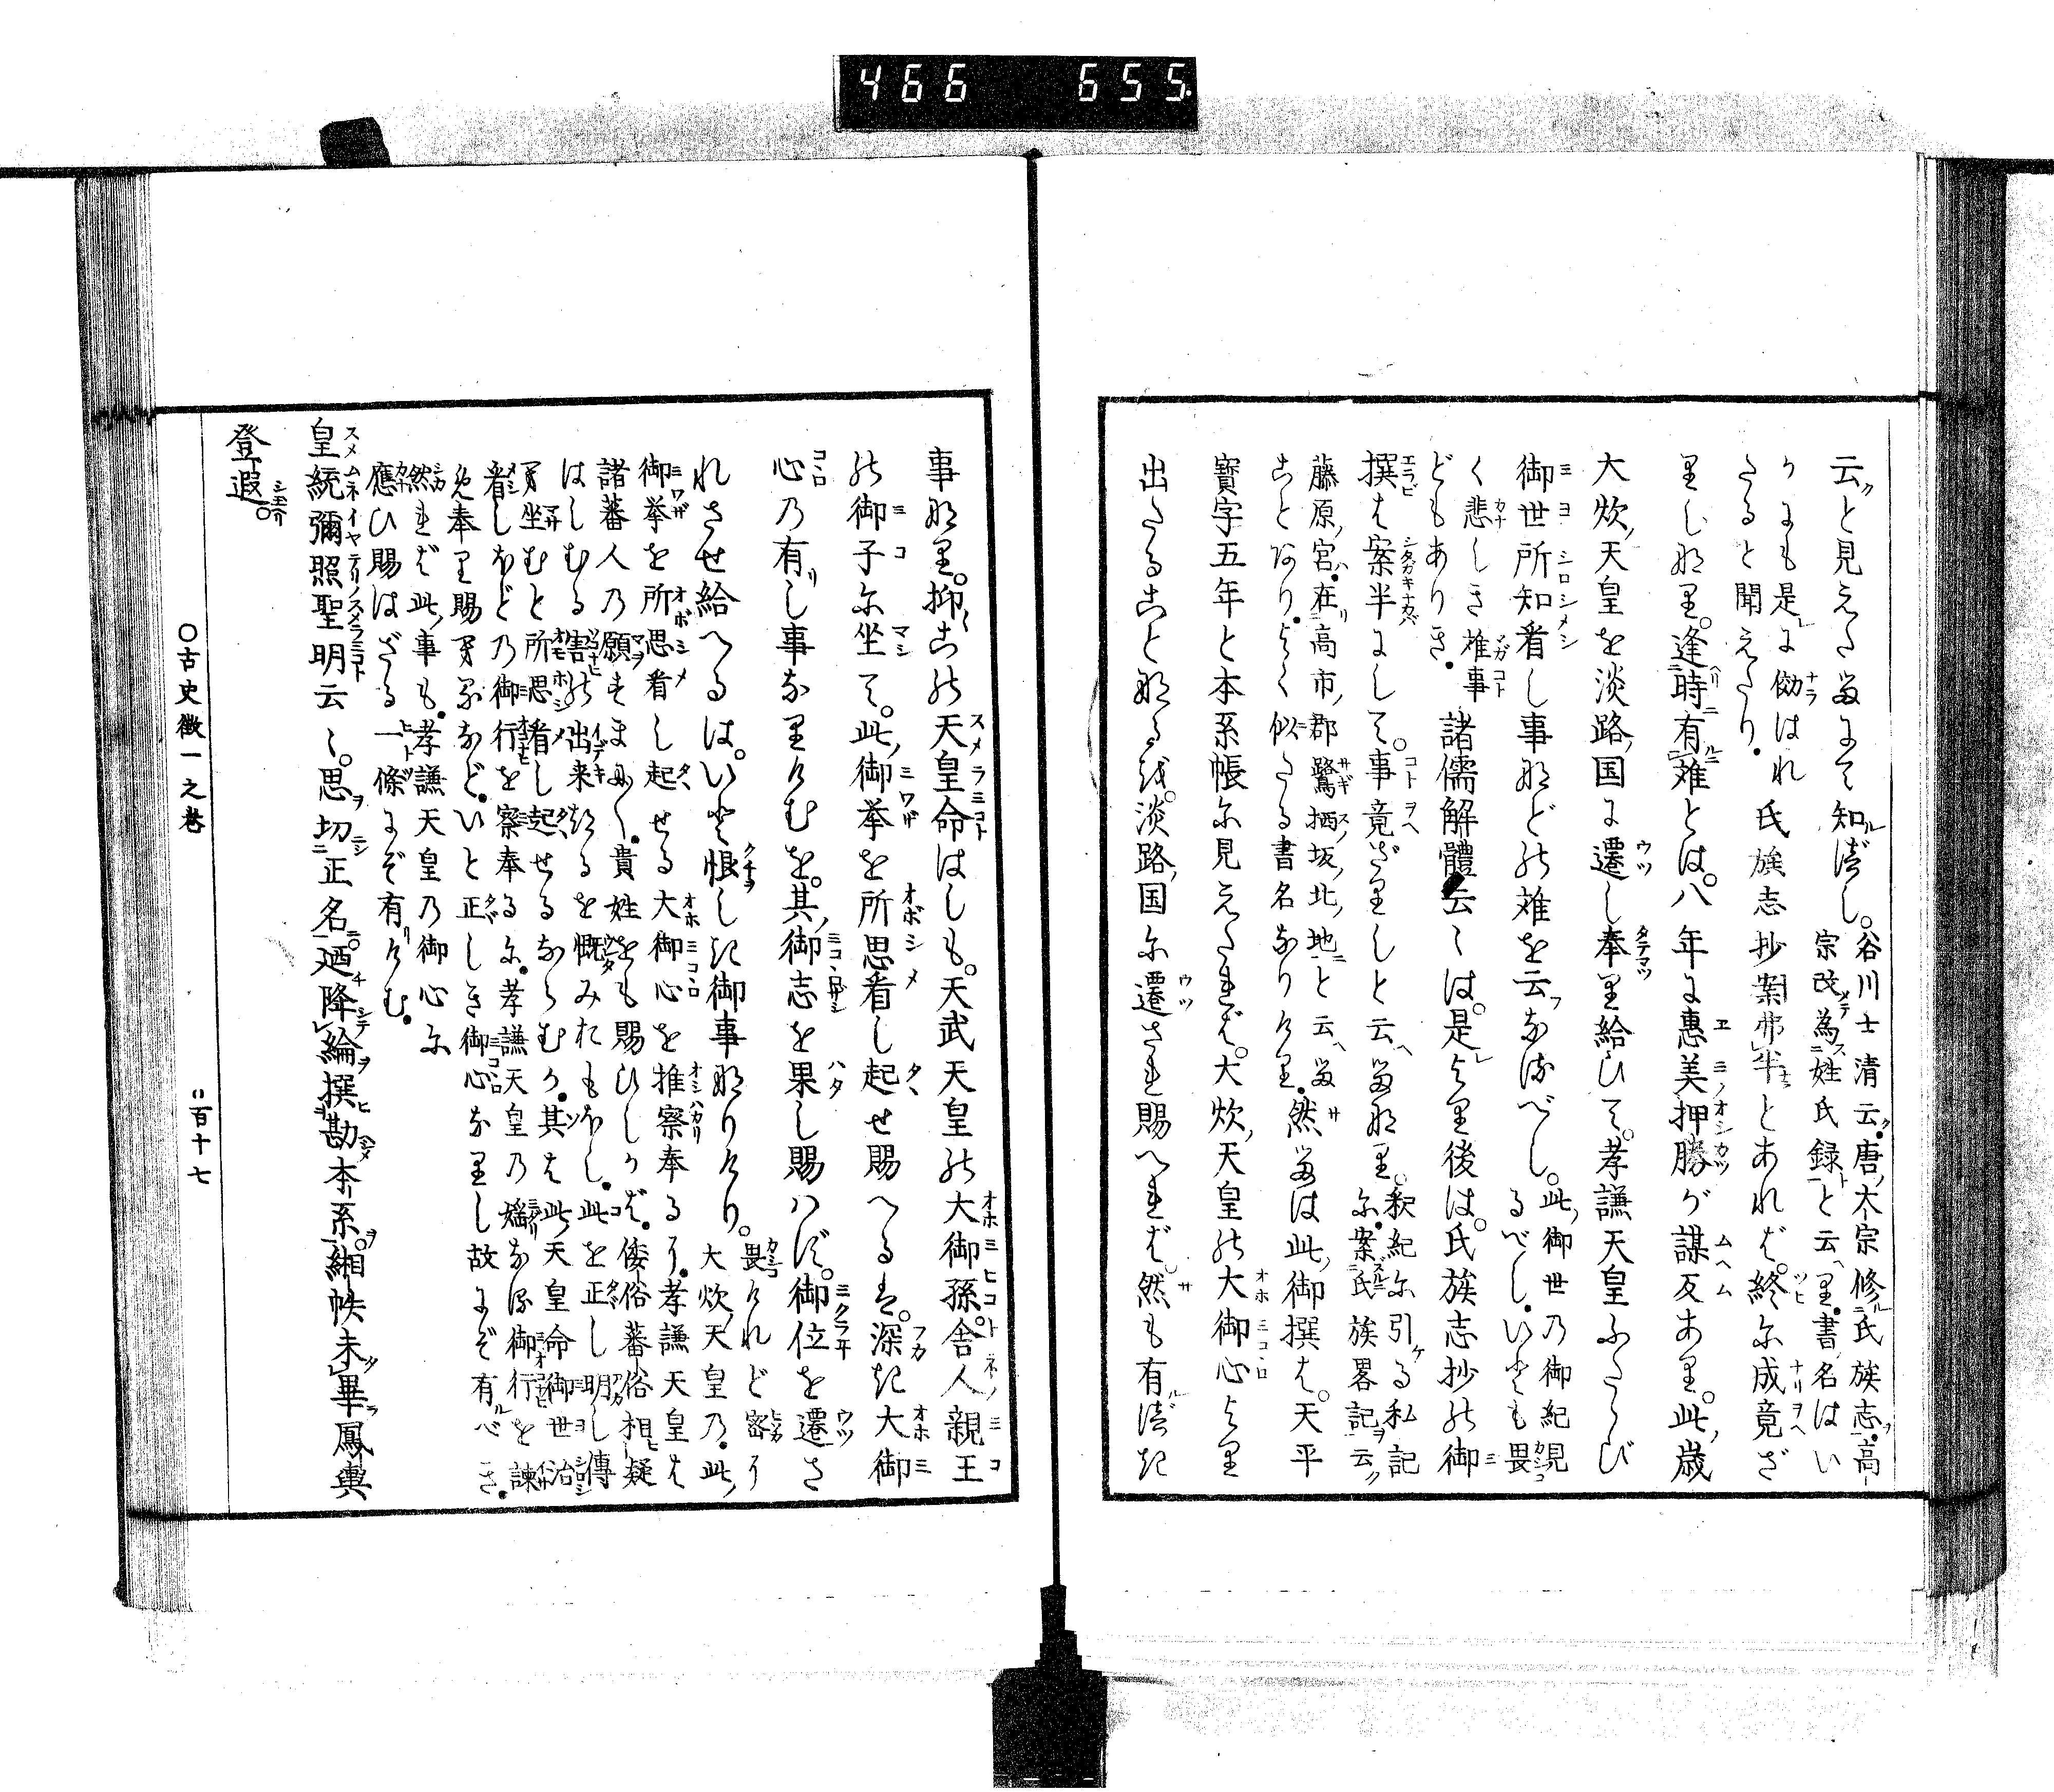 466 655
云と見えたるにて知べし。谷川士清云。唐太宗修氏族志。高
宗改為姓氏録と云へり。書名はい
かにも是に傚はれ
たると聞えたり。
氏族志抄案弗半とあれば。終に成竟ざ
りしなり。逢時有難とは。八年に惠美押勝が謀反あり。此歳
大炊天皇を淡路国に遷し奉り給ひて。孝謙天皇ふたゝび
御世所知看し事などの難を云なるべし。此御世乃御紀見
るべし。いとも畏
く悲しき難事
どもありき。
諸儒解體云〻は。是より後は。氏族志抄の御
撰は案半にして。事竟ざりしと云へるなり。釈紀に引る私記
に。案氏族畧記云
藤原宮在高市郡鷺栖坂北地と云へる
ことあり。よく似たる書名なりけり。
然るは此御撰は。天平
寳字五年と本系帳に見えたれば。大炊天皇の大御心より
出たること なるを。淡路国に遷され賜へれば。然も有べき
事なり。抑この天皇命はしも。天武天皇の大御孫。舎人親王
の御子に坐て。此御挙を所思看し起せ賜へるは。深き大御
心乃有し事なりけむを。其御志を果し賜はず。御位を遷さ
れさせ給へるは。いと悵しき御事なりけり。畏けれど密に
大炊天皇乃此
御挙を所思看し起せる大御心を推察奉るに。孝謙天皇は
諸蕃人乃願すまにく。貴姓をも賜ひしかば。倭俗蕃俗相疑
はしむる害の出来けるを慨みおもほし。此を正し明し傳
賜坐むと所思看し起せるならむか。其は此天皇命御世治
看しほどの御行を察奉るに。孝謙天皇乃婬なる御行を諫
め奉り賜へるなど。いと正しき御心なりし故にぞ有べき。
然れば此事も。孝謙天皇乃御心に
應ひ賜はざる一條にぞ有けむ。
皇統彌照聖明云〻。思切正名。廼降綸撰勘本系。緗帙未畢鳳輿
登遐。
○古史徴一之巻
百十七